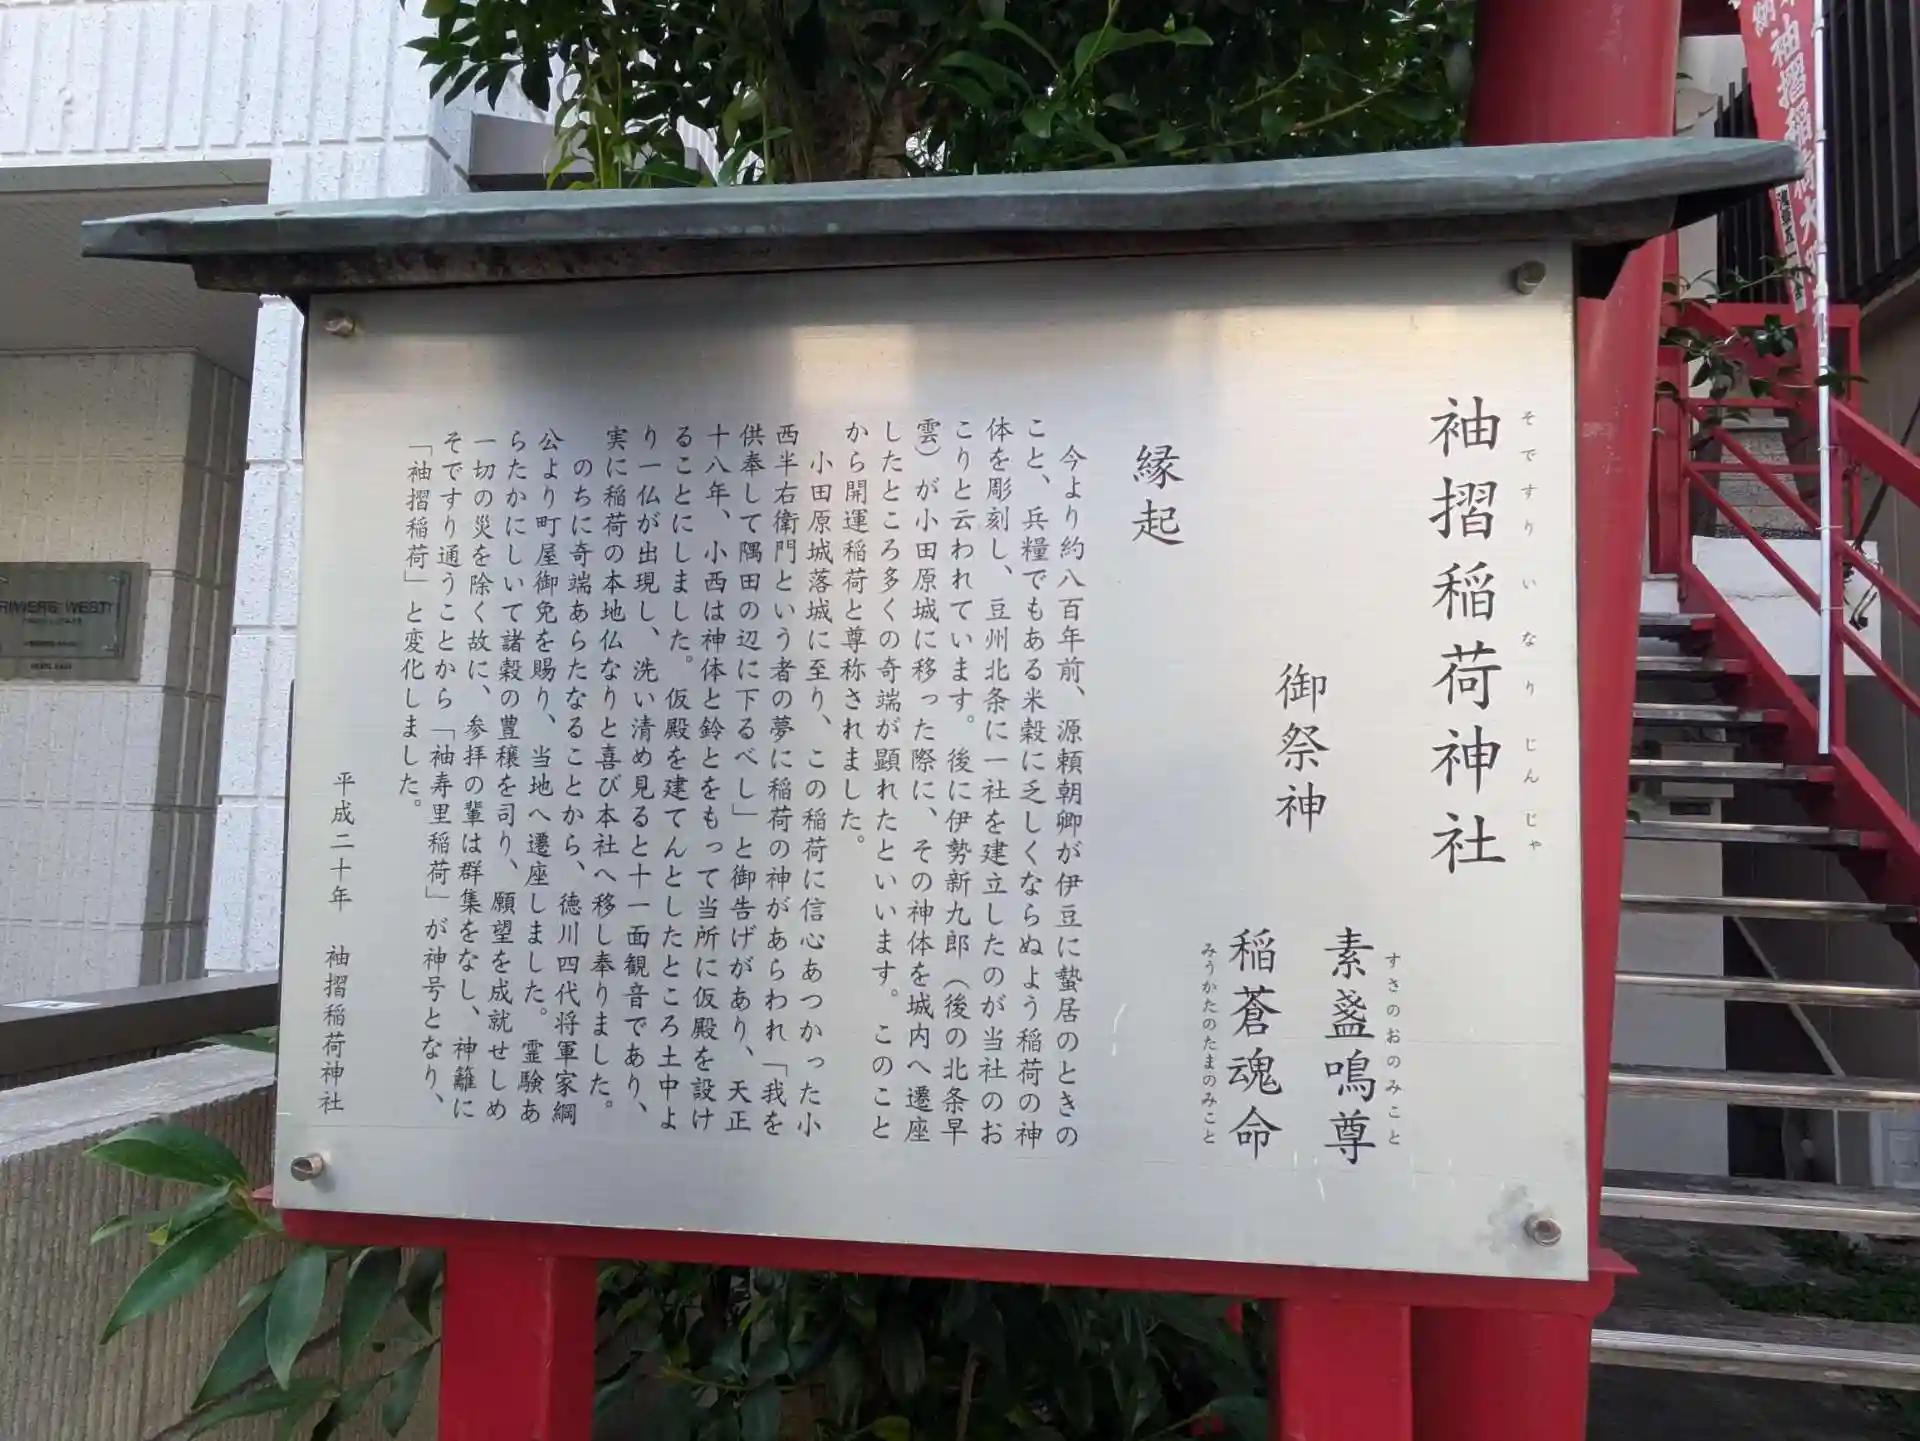 袖摺稲荷神社
そですりいなりじんじゃ
御祭神
素盞鳴尊
すさのおのみこと
稲蒼魂命
みうかたのたまのみこと
縁起
今より約八百年前、源頼朝卿が伊豆に蟄居のときの
こと、兵糧でもある米穀に乏しくならぬよう稲荷の神
体を彫刻し、豆州北条に一社を建立したのが当社のお
こりと云われています。後に伊勢新九郎（後の北条早
雲）が小田原城に移った際に、その神体を城内へ遷座
したところ多くの奇端が顕れたといいます。このこと
から開運稲荷と尊称されました。
小田原城落城に至り、この稲荷に信心あつかった小
西半右衛門という者の夢に稲荷の神があらわれ「我を
供奉して隅田の辺に下るべし」と御告げがあり、天正
十八年、小西は神体と鈴とをもって当所に仮殿を設け
ることにしました。仮殿を建てんとしたところ土中よ
り一仏が出現し、洗い清め見ると十一面観音であり、
実に稲荷の本地仏なりと喜び本社へ移し奉りました。
のちに奇端あらたなることから、徳川四代将軍家綱
公より町屋御免を賜り、当地へ遷座しました。霊験あ
らたかにしいて諸穀の豊穣を司り、願望を成就せしめ
一切の災を除く故に、参拝の輩は群集をなし、神籬に
そですり通うことから「袖寿里稲荷」が神号となり、
「袖摺稲荷」と変化しました。
平成二十年　袖摺稲荷神社
納
袖摺稲荷大
RIVIERE WEST